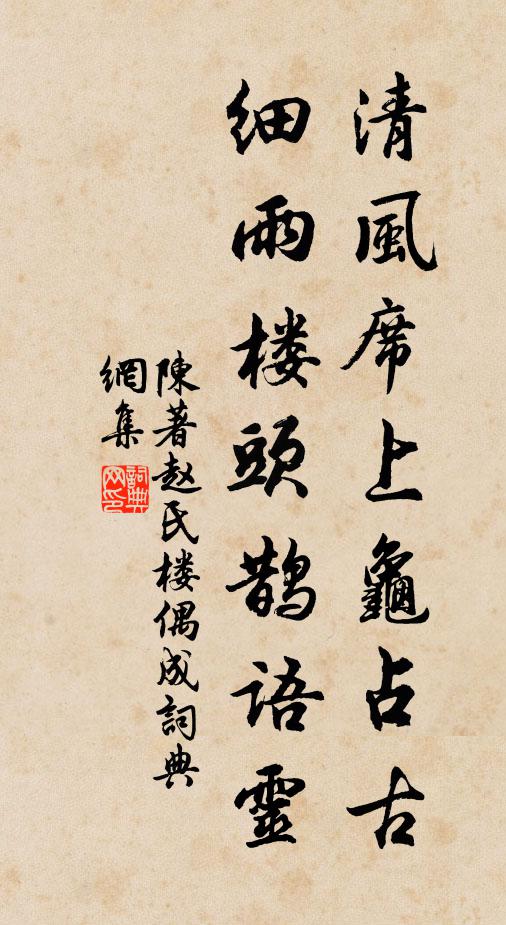 清風席上龜占古
细雨楼頭鹊語靈
陳著赵氏楼偶成詞典
網集
詞典
网印